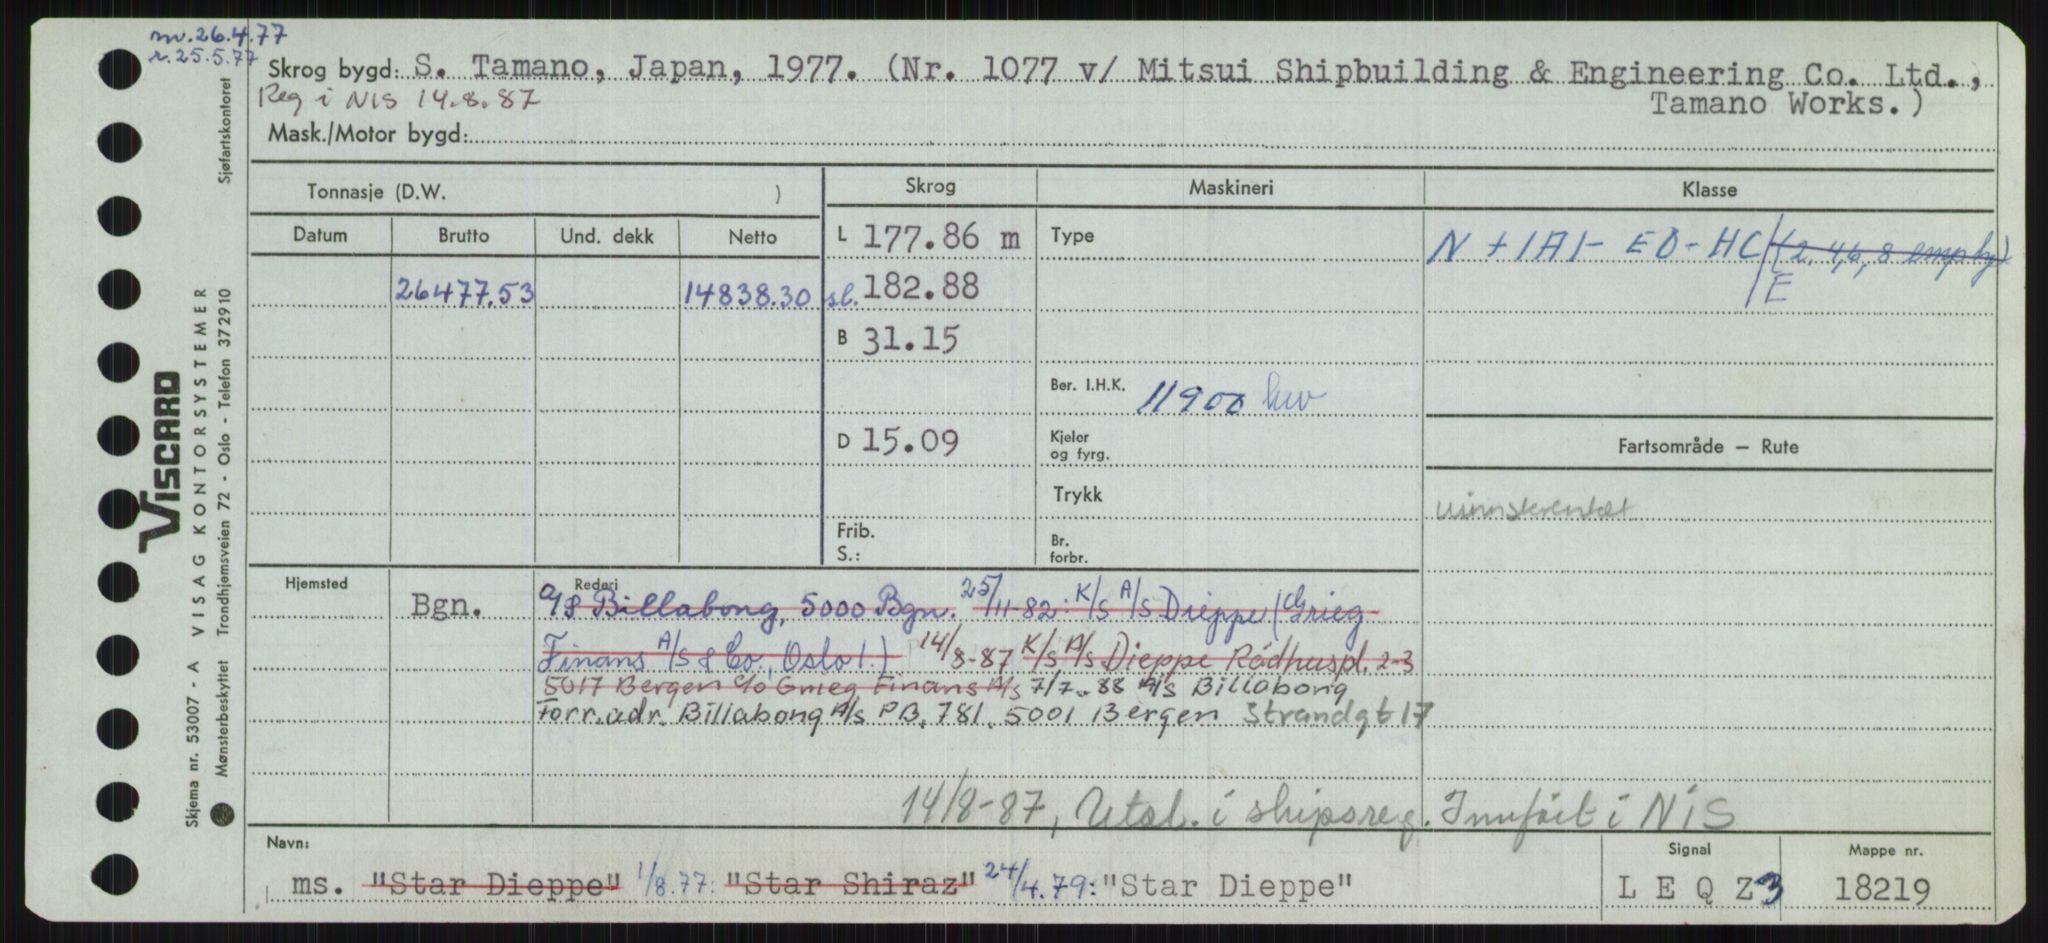 m.26.4.77
r.25.5.77
Skrog bygd: S. Tamano, Japan, 1977. (Nr. 1077 v/ Mitsui Shipbuilding & Engineering Co. Ltd.,
Tamano Works.)
Reg i NIS 14.8.87
Mask./Motor bygd:
Tonnasje (D.W. )
Skrog
Maskineri
Klasse
Datum Brutto Und. dekk Netto
L 177.86 m
Type
N + 1A1 - EO - HC/(2,4,6,8 emp
E
26477.53 14838.30
sl. 182.88
B 31.15
Ber. I.H.K. 11900 kw
D 15.09
Kjeler
og fyrg.
Fartsområde – Rute
Trykk
Frib.
S.:
Br.
forbr.
Hjemsted
Bgn.
Rederi
A/S Billabong, 5000 Bgn. 25/11-82: K/S A/S Dieppe (Grieg
Finans A/S & Co., Oslo 1.) 14/8-87 K/S A/S Dieppe Rådhuspl. 2-3
5017 Bergen c/o Grieg Finans A/s 7/7-88 A/S Billabong
Forr.adr. Billabong A/s PB. 781. 5001 Bergen Strandgt 17
14/8-87, Utsl. i skipsreg. Innført i NIS
Navn:
ms. "Star Dieppe" 1/8.77: "Star Shiraz" 24/4.79: "Star Dieppe"
Signal
L E Q Z 3
Mappe nr.
18219
VISCARD
Skjema nr. 53007 - A VISAG KONTORSYSTEMER
Mønsterbeskyttet Trondhjemsveien 72 - Oslo - Telefon 372910
Sjøfartskontoret